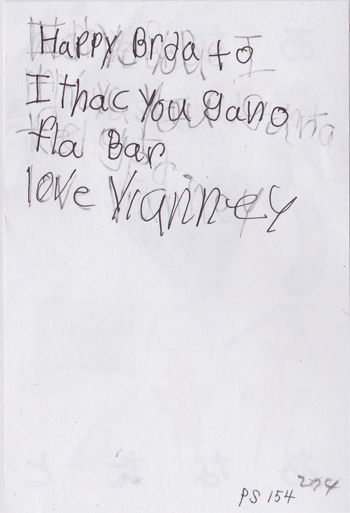 Happy Brda to
I thac you gano
fla Bar
love Vianney
PS 154
274